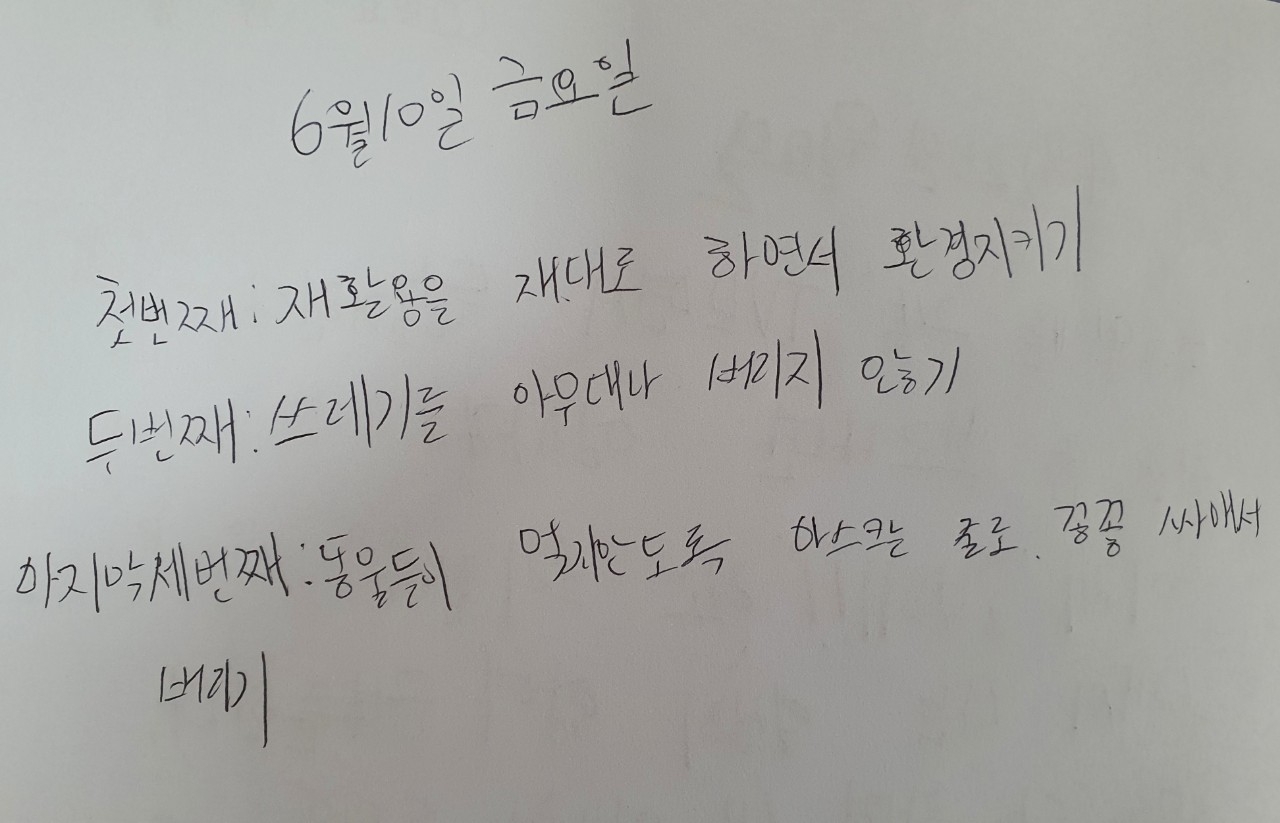 6월10일 금요일
첫번째: 재활용을 재대로 하면서 환경지키기
두번째: 쓰레기를 아무대나 버리지 않기
마지막세번째: 동물들이 먹지안도록 마스크는 줄로 꽁꽁 싸애서
버리기